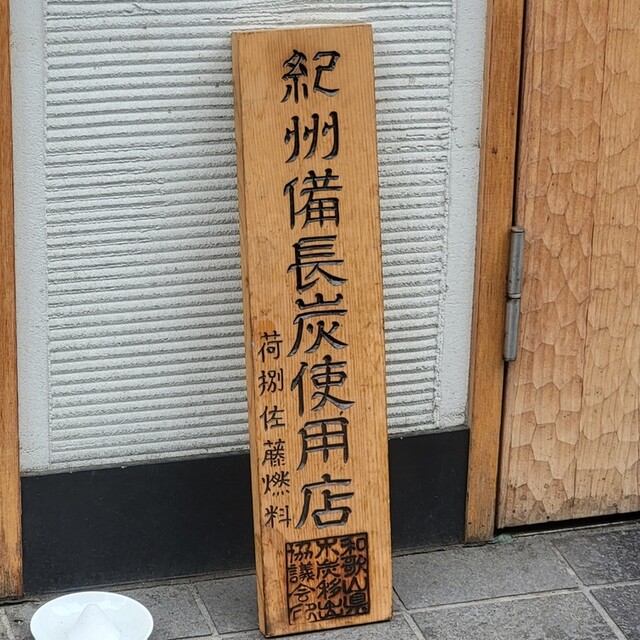 紀州備長炭使用店
荷捌佐藤燃料
和歌山県
協議会印